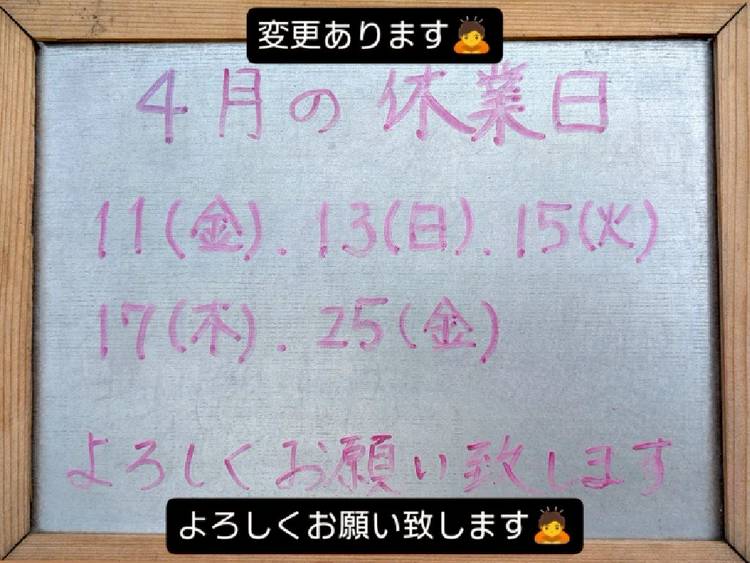 変更あります🙇
4月の休業日
11(金).13(日).15(火)
17(木).25(金)
よろしくお願い致します
よろしくお願い致します🙇